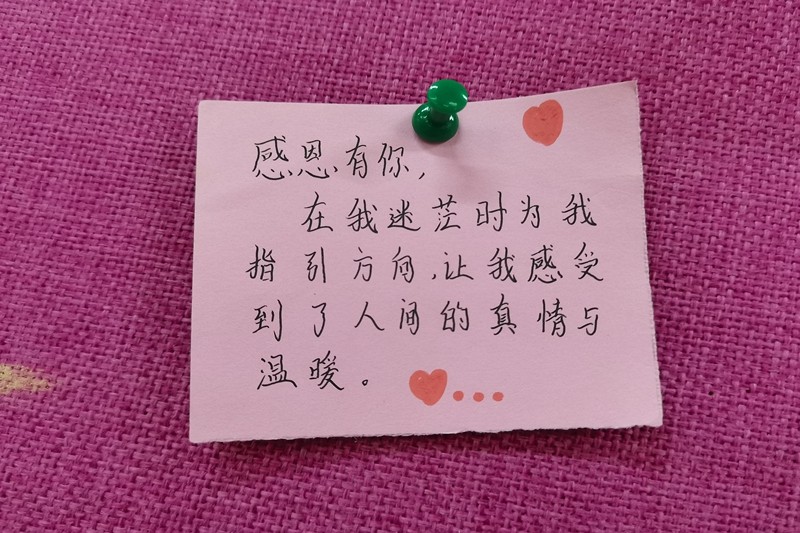 感恩有你，
在我迷茫时为我
指引方向，让我感受
到了人间的真情与
温暖。